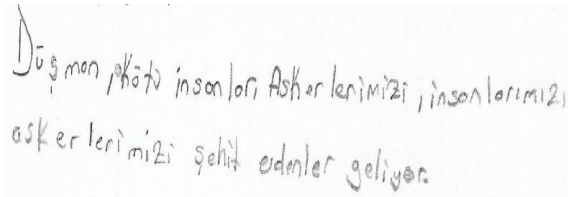 Düşman, kötü insanları Askerlerimizi, insanlarımızı,
askerlerimizi şehit edenler geliyor.